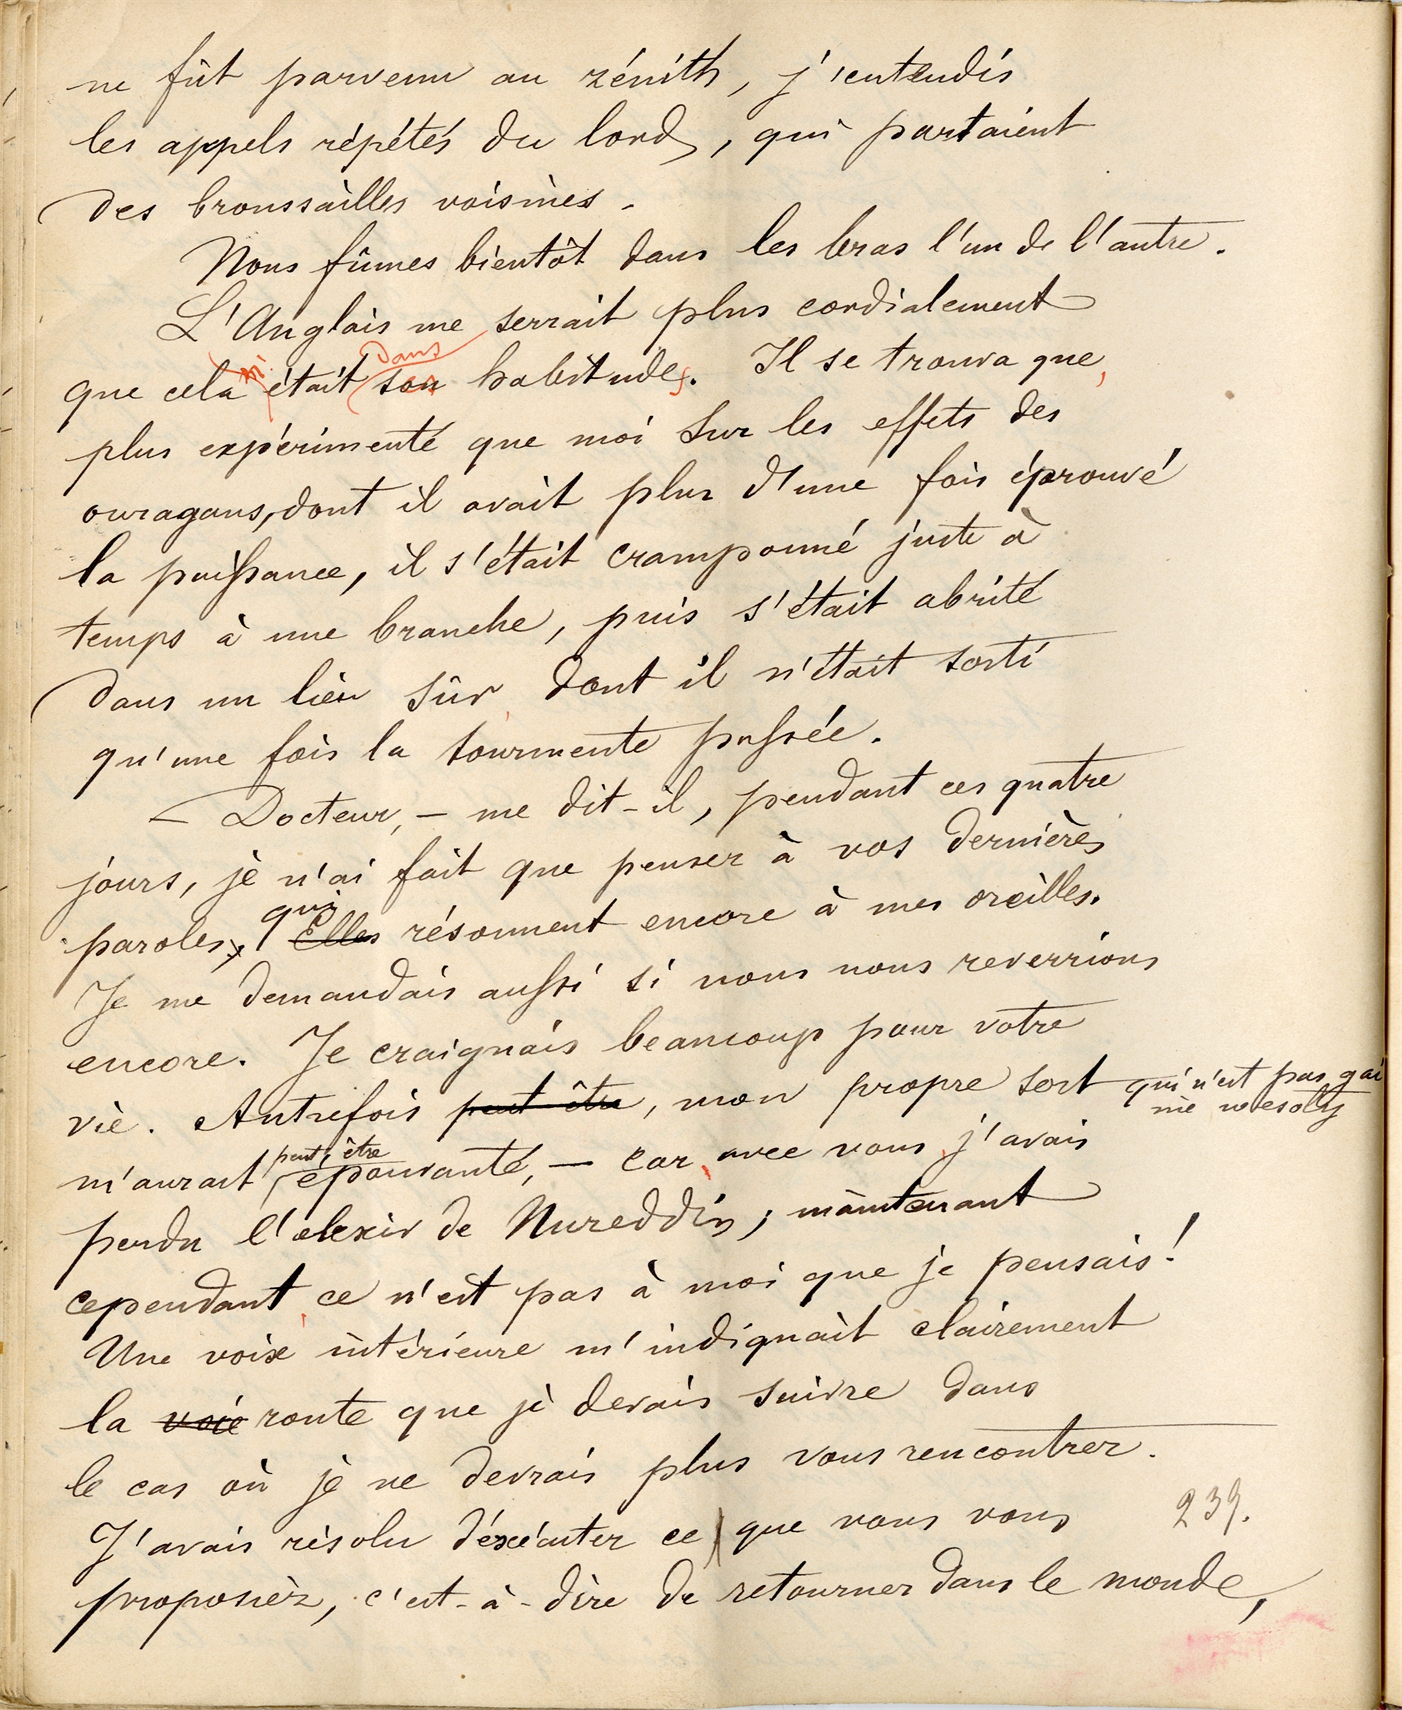 ne fût parvenu au zénith, j'entendis
les appels répétés du lord, qui partaient
des broussailles voisines.
Nous fûmes bientôt dans les bras l'un de l'autre.
L'Anglais me serrait plus cordialement
dans
que cela était son habitudes. Il se trouva que,
plus expérimenté que moi sur les effets des
ouragans, dont il avait plus d'une fois éprouvé
la puissance, il s'était cramponné juste à
temps à une branche, puis s'était abrité
dans un lieu sûr, dont il n'était sorti
qu'une fois la tourmente passée.
— Docteur, — me dit-il, pendant ces quatre
jours, je n'ai fait que penser à vos dernières
paroles, qui Elles résonnent encore à mes oreilles.
Je me demandais aussi si nous nous reverrions
encore. Je craignais beaucoup pour votre
vie. Autrefois peut-être, mon propre sort qui n'est pas gai
nie wesoły
m'aurait peut-être épouvanté, — car, avec vous, j'avais
perdu l'elexir de Nureddin; maintenant
cependant, ce n'est pas à moi que je pensais!
Une voix intérieure m'indiquait clairement
la voie route que je devais suivre dans
le cas où je ne devrais plus vous rencontrer.
J'avais résolu d'exécuter ce que vous vous
239.
proposiez, c'est-à-dire de retourner dans le monde,